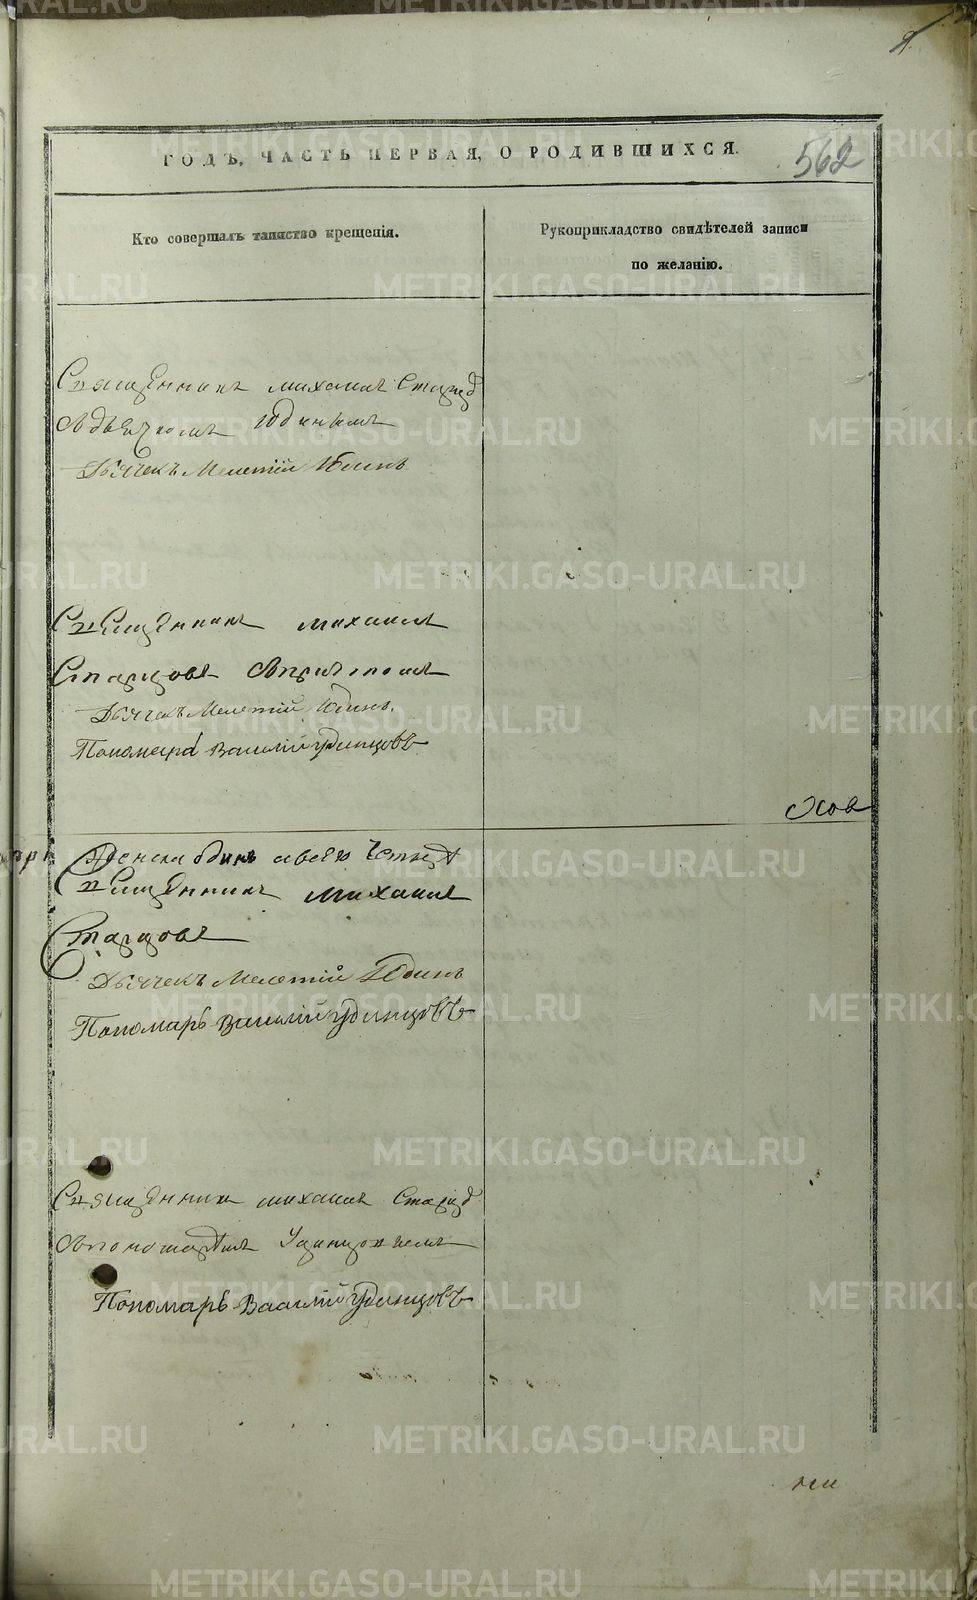 ГОДЪ, ЧАСТЬ ПЕРВАЯ, О РОДИВШИХСЯ.
562
Кто совершалъ таинство крещенія.
Рукоприкладство свидѣтелей записи
по желанію.
Священникъ михаилъ Старцо
Юдинымъ
Дьячекъ Мелетій Юдинъ
Священникъ михаилъ
Старцовъ
Дьячекъ Мелетій Юдинъ.
Пономарь Василій Удинцовъ
женска
Священникъ михаилъ
Старцовъ
Дьячекъ Мелетій Юдинъ
Пономарь Василій Удинцовъ
Священникъ михаилъ Старцо
Спономаремъ Удинцовымъ
Пономарь Василій Удинцовъ
METRIKI.GASO-URAL.RU